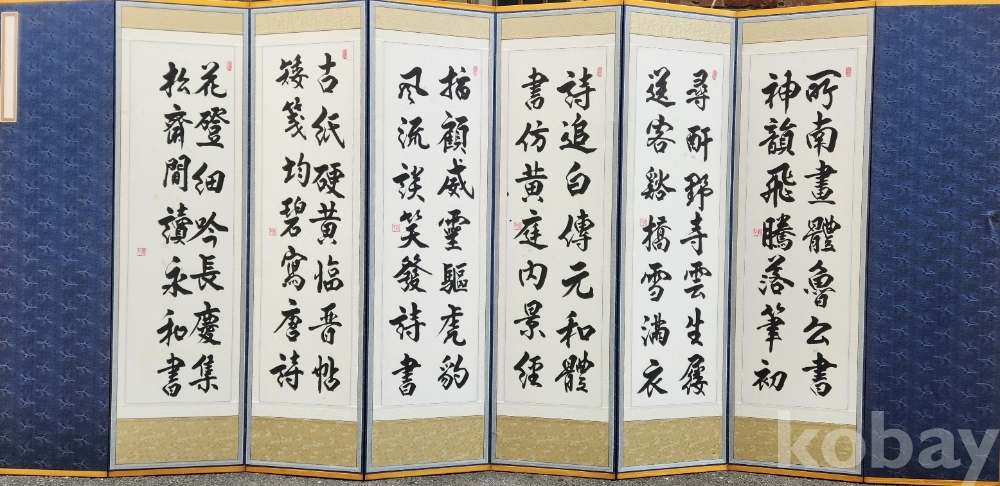 所南畫體魯公書
神韻飛騰落筆初
尋酐野寺雲生屨
送客谿橋雪滿衣
詩追白傅元和體
書仿黄庭内景經
指顧威靈驅虎豹
風流談笑發詩書
古紙硬黄臨晋帖
矮箋均碧寫唐詩
花磴細吟長慶集
松齋閒讀永和書
kobay